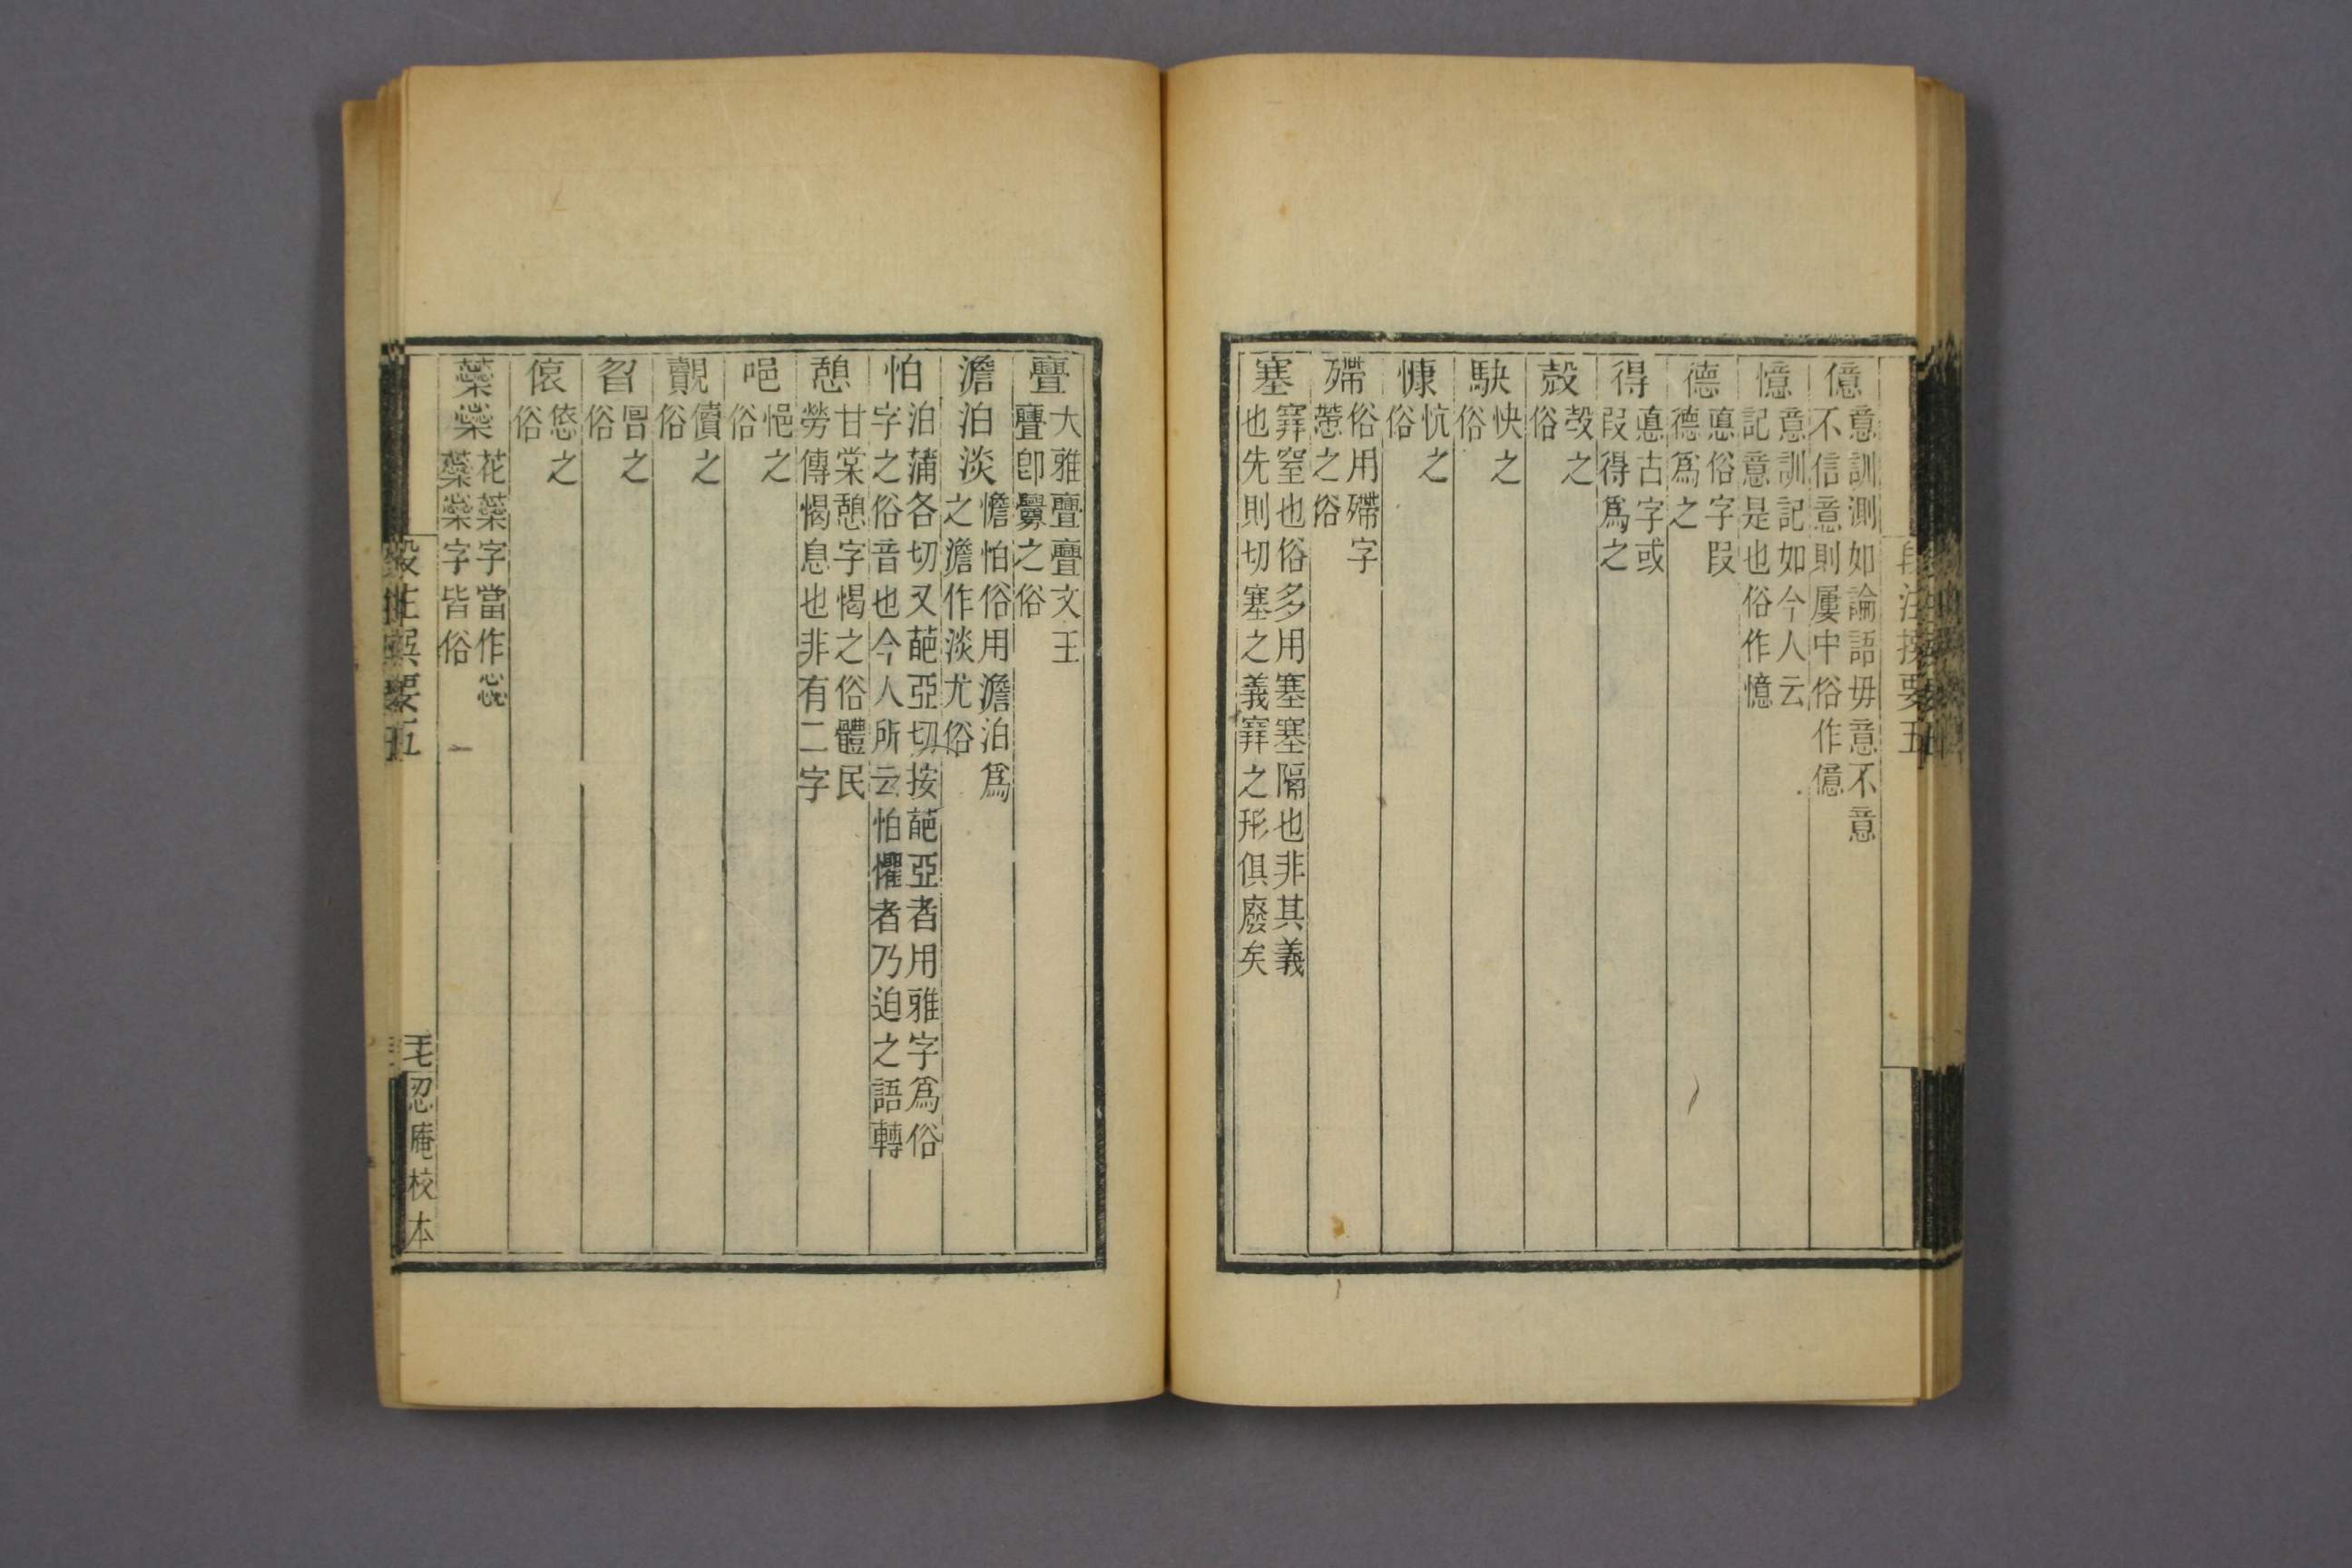 段注撰要五
億
意訓測如論語毋意不意
不信意則屢中俗作億
憶
意訓記如今人云
記意是也俗作憶
德
悳俗字叚
德爲之
得
悳古字或
叚得爲之
㱿
㱾之
俗
駃
快之
俗
慷
忼之
俗
殢
俗用殢字
懘之俗
塞
窲窒也俗多用塞塞隔也非其義
也先則切塞之義窲之形俱廢矣
亹
大雅亹亹文王
亹卽釁之俗
澹泊淡
憺怕俗用澹泊爲
之澹作淡尤俗
怕
泊蒲各切又葩亞切按葩亞者用雅字爲俗
字之俗音也今人所云怕懼者乃迫之語轉
憩
甘棠憩字愒之俗體民
勞傳愒息也非有二字
唈
悒之
俗
覿
儥之
俗
曶
㫚之
俗
偯
㥋之
俗
蘂橤
花蘂字當作惢
蘂橤字皆俗
段注撰要五
毛忍庵校本